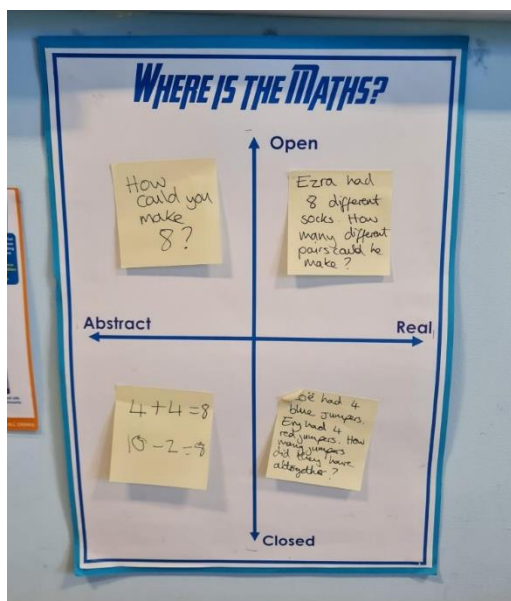 WHERE IS THE MATHS?
Open
How
could you
make
8?
Ezra had
8 different
socks. How
many different
pairs could he
make?
Abstract
Real
4+4=8
10-2=8
had 4
blue jumpers.
had 4
red jumpers. How
many jumpers
did they have
altogether?
Closed